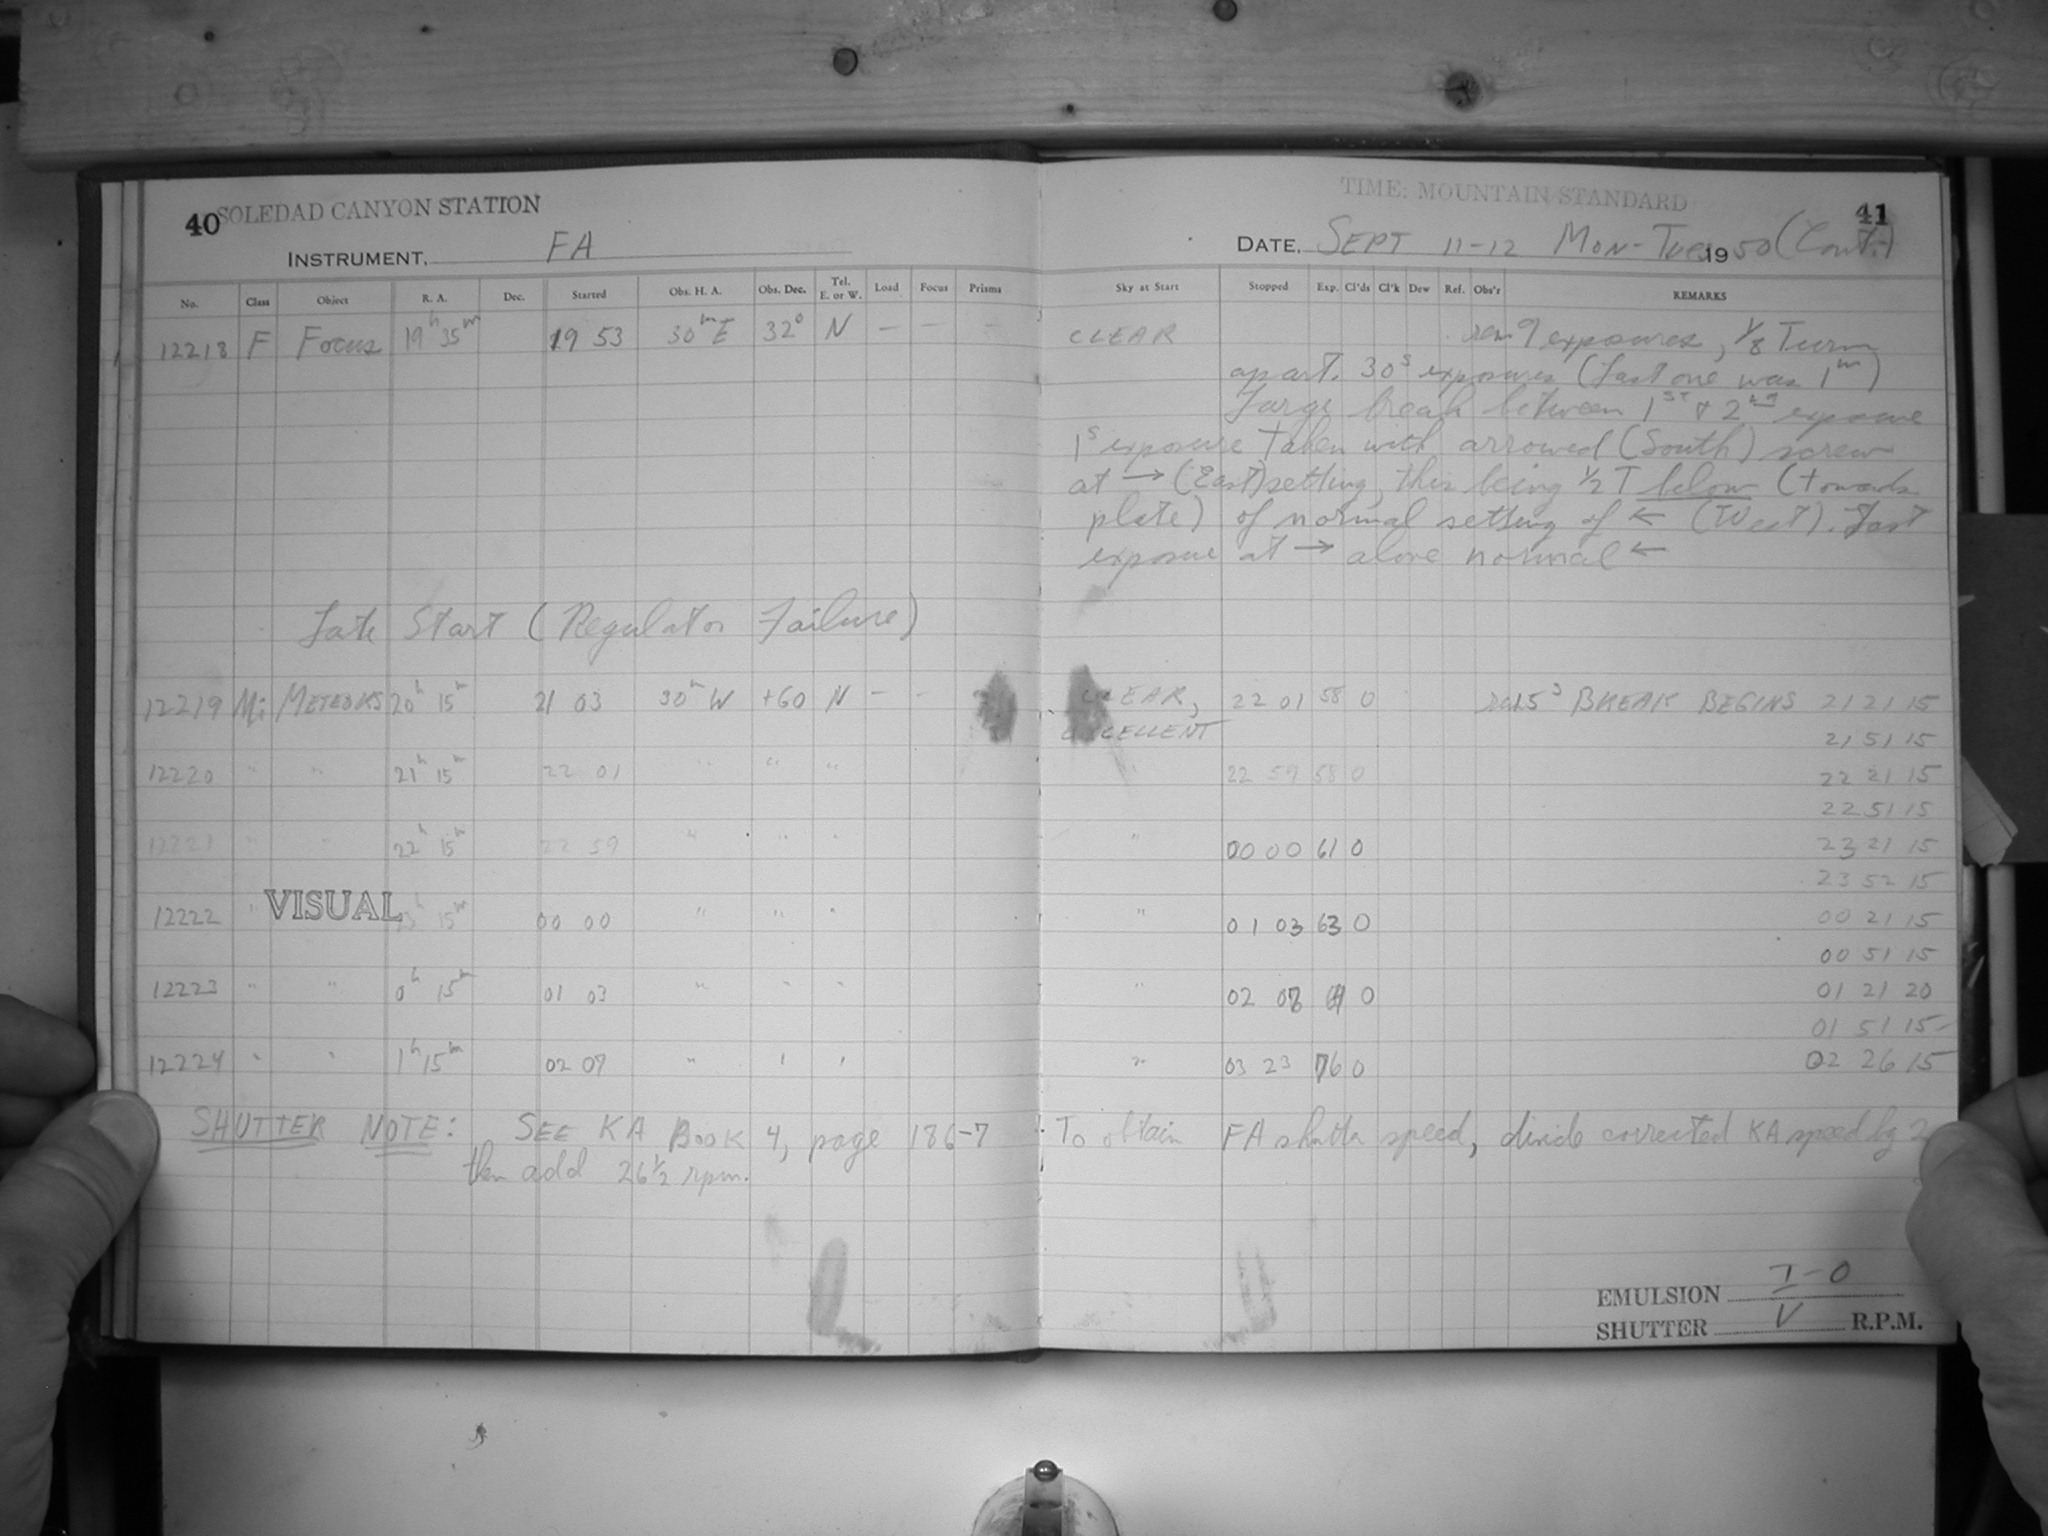 40 SOLEDAD CANYON STATION
INSTRUMENT, FA
No. Class Object R. A. Dec. Started Obs. H. A. Obs. Dec. Tel. E. or W. Load Focus Prisms
12218 F Focus 19h 35m 19 53 30m E 32° N — — —
Late Start (Regulator Failure)
12219 Mi METEORS 20h 15m 21 03 30m W +60 N - -
12220 " " 21h 15m 22 01 " " "
12221 " " 22h 15m 22 59 " " "
12222 " VISUAL 15m 00 00 " " "
12223 " " 0h 15m 01 03 " " "
12224 " " 1h 15m 02 07 " " "
SHUTTER NOTE: SEE KA BOOK 4, page 186-7
then add 26 1/2 rpm.
TIME: MOUNTAIN STANDARD
41
DATE, SEPT 11-12 MON-TUES 1950 (Cont.)
Sky at Start Stopped Exp. Cl'ds Cl'k Dew Ref. Obs'r REMARKS
CLEAR 9 exposures, 1/8 Turn
apart. 30s exposures (Last one was 1m)
Large break between 1st & 2nd exposure
1s exposure taken with arrowed (South) screw
at → (East) setting, this being 1/2 T below (towards
plate) of normal setting of ← (West). Last
exposure at → above normal ←
CLEAR, 22 01 58 0 5s BREAK BEGINS 21 21 15
EXCELLENT 21 51 15
" 22 59 58 0 22 21 15
22 51 15
" 00 00 61 0 23 21 15
23 52 15
" 01 03 63 0 00 21 15
00 51 15
" 02 0 0 01 21 20
01 51 15
" 03 23 76 0 02 26 15
To obtain FA shutter speed, divide corrected KA speed by 2
EMULSION I-0
SHUTTER V R.P.M.